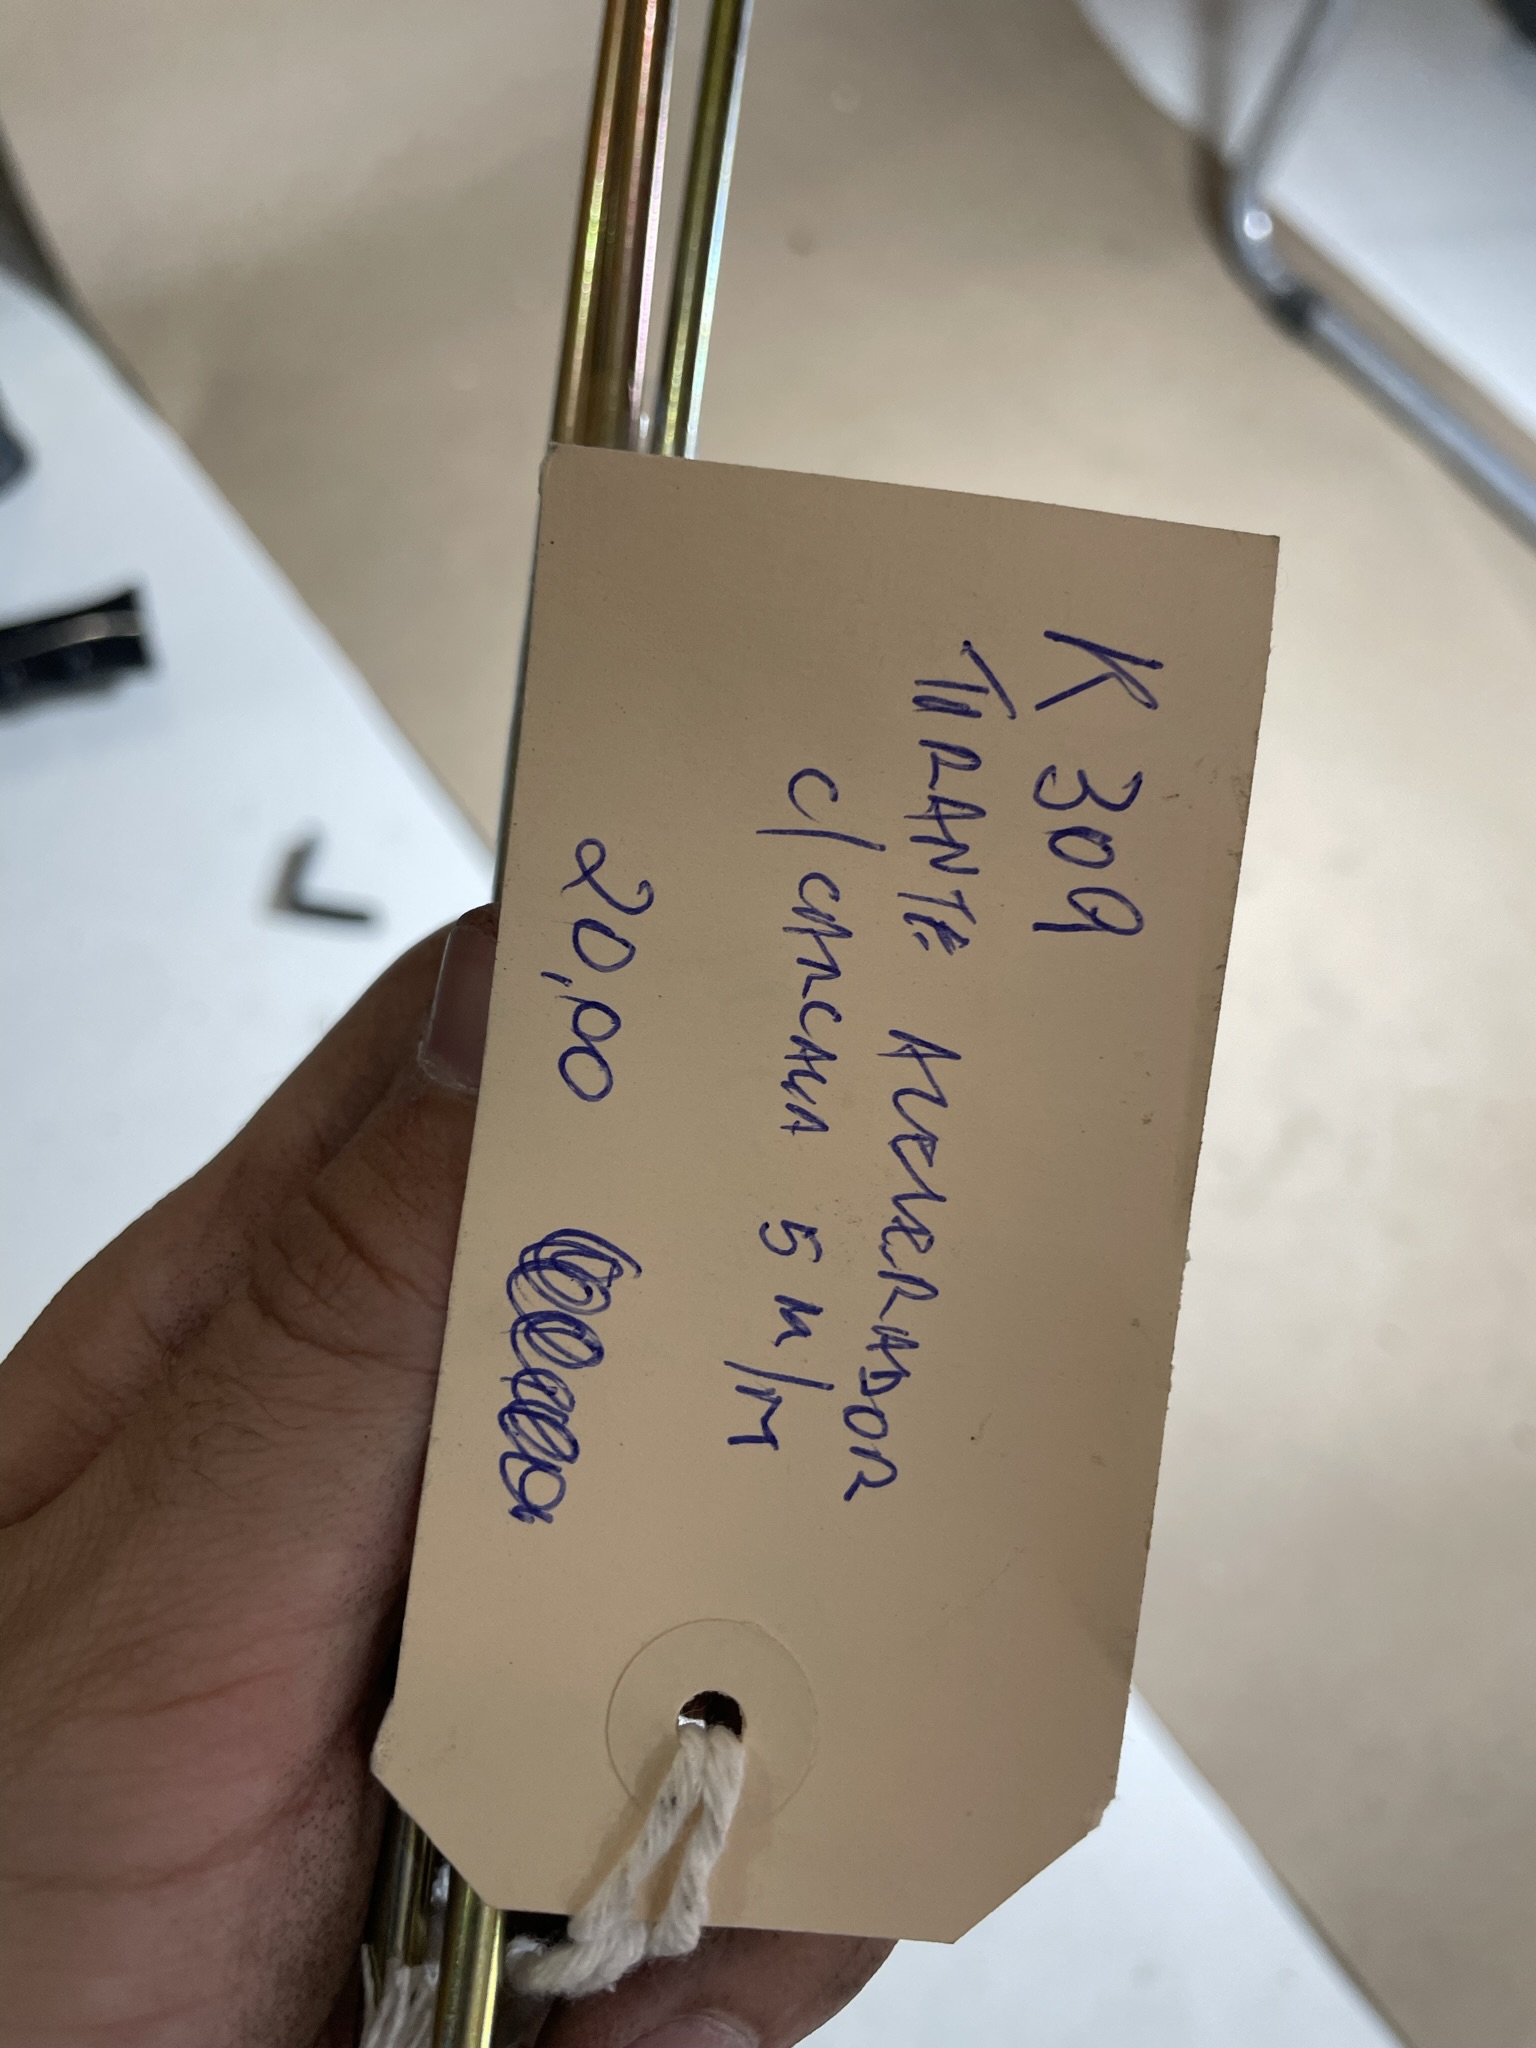 K 309
TIRANTE ACCELERADOR
C/ CARCAÇA 5 M/M
20,00